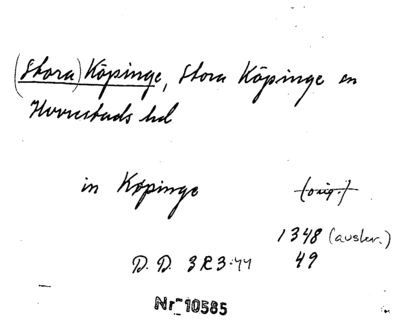 (Stora) Köpinge, Stora Köpinge sn
Herrestads hd
in Köpinge (orig.)
1348 (avskr.)
D. D. 3 R 3:44 49
Nr 10585